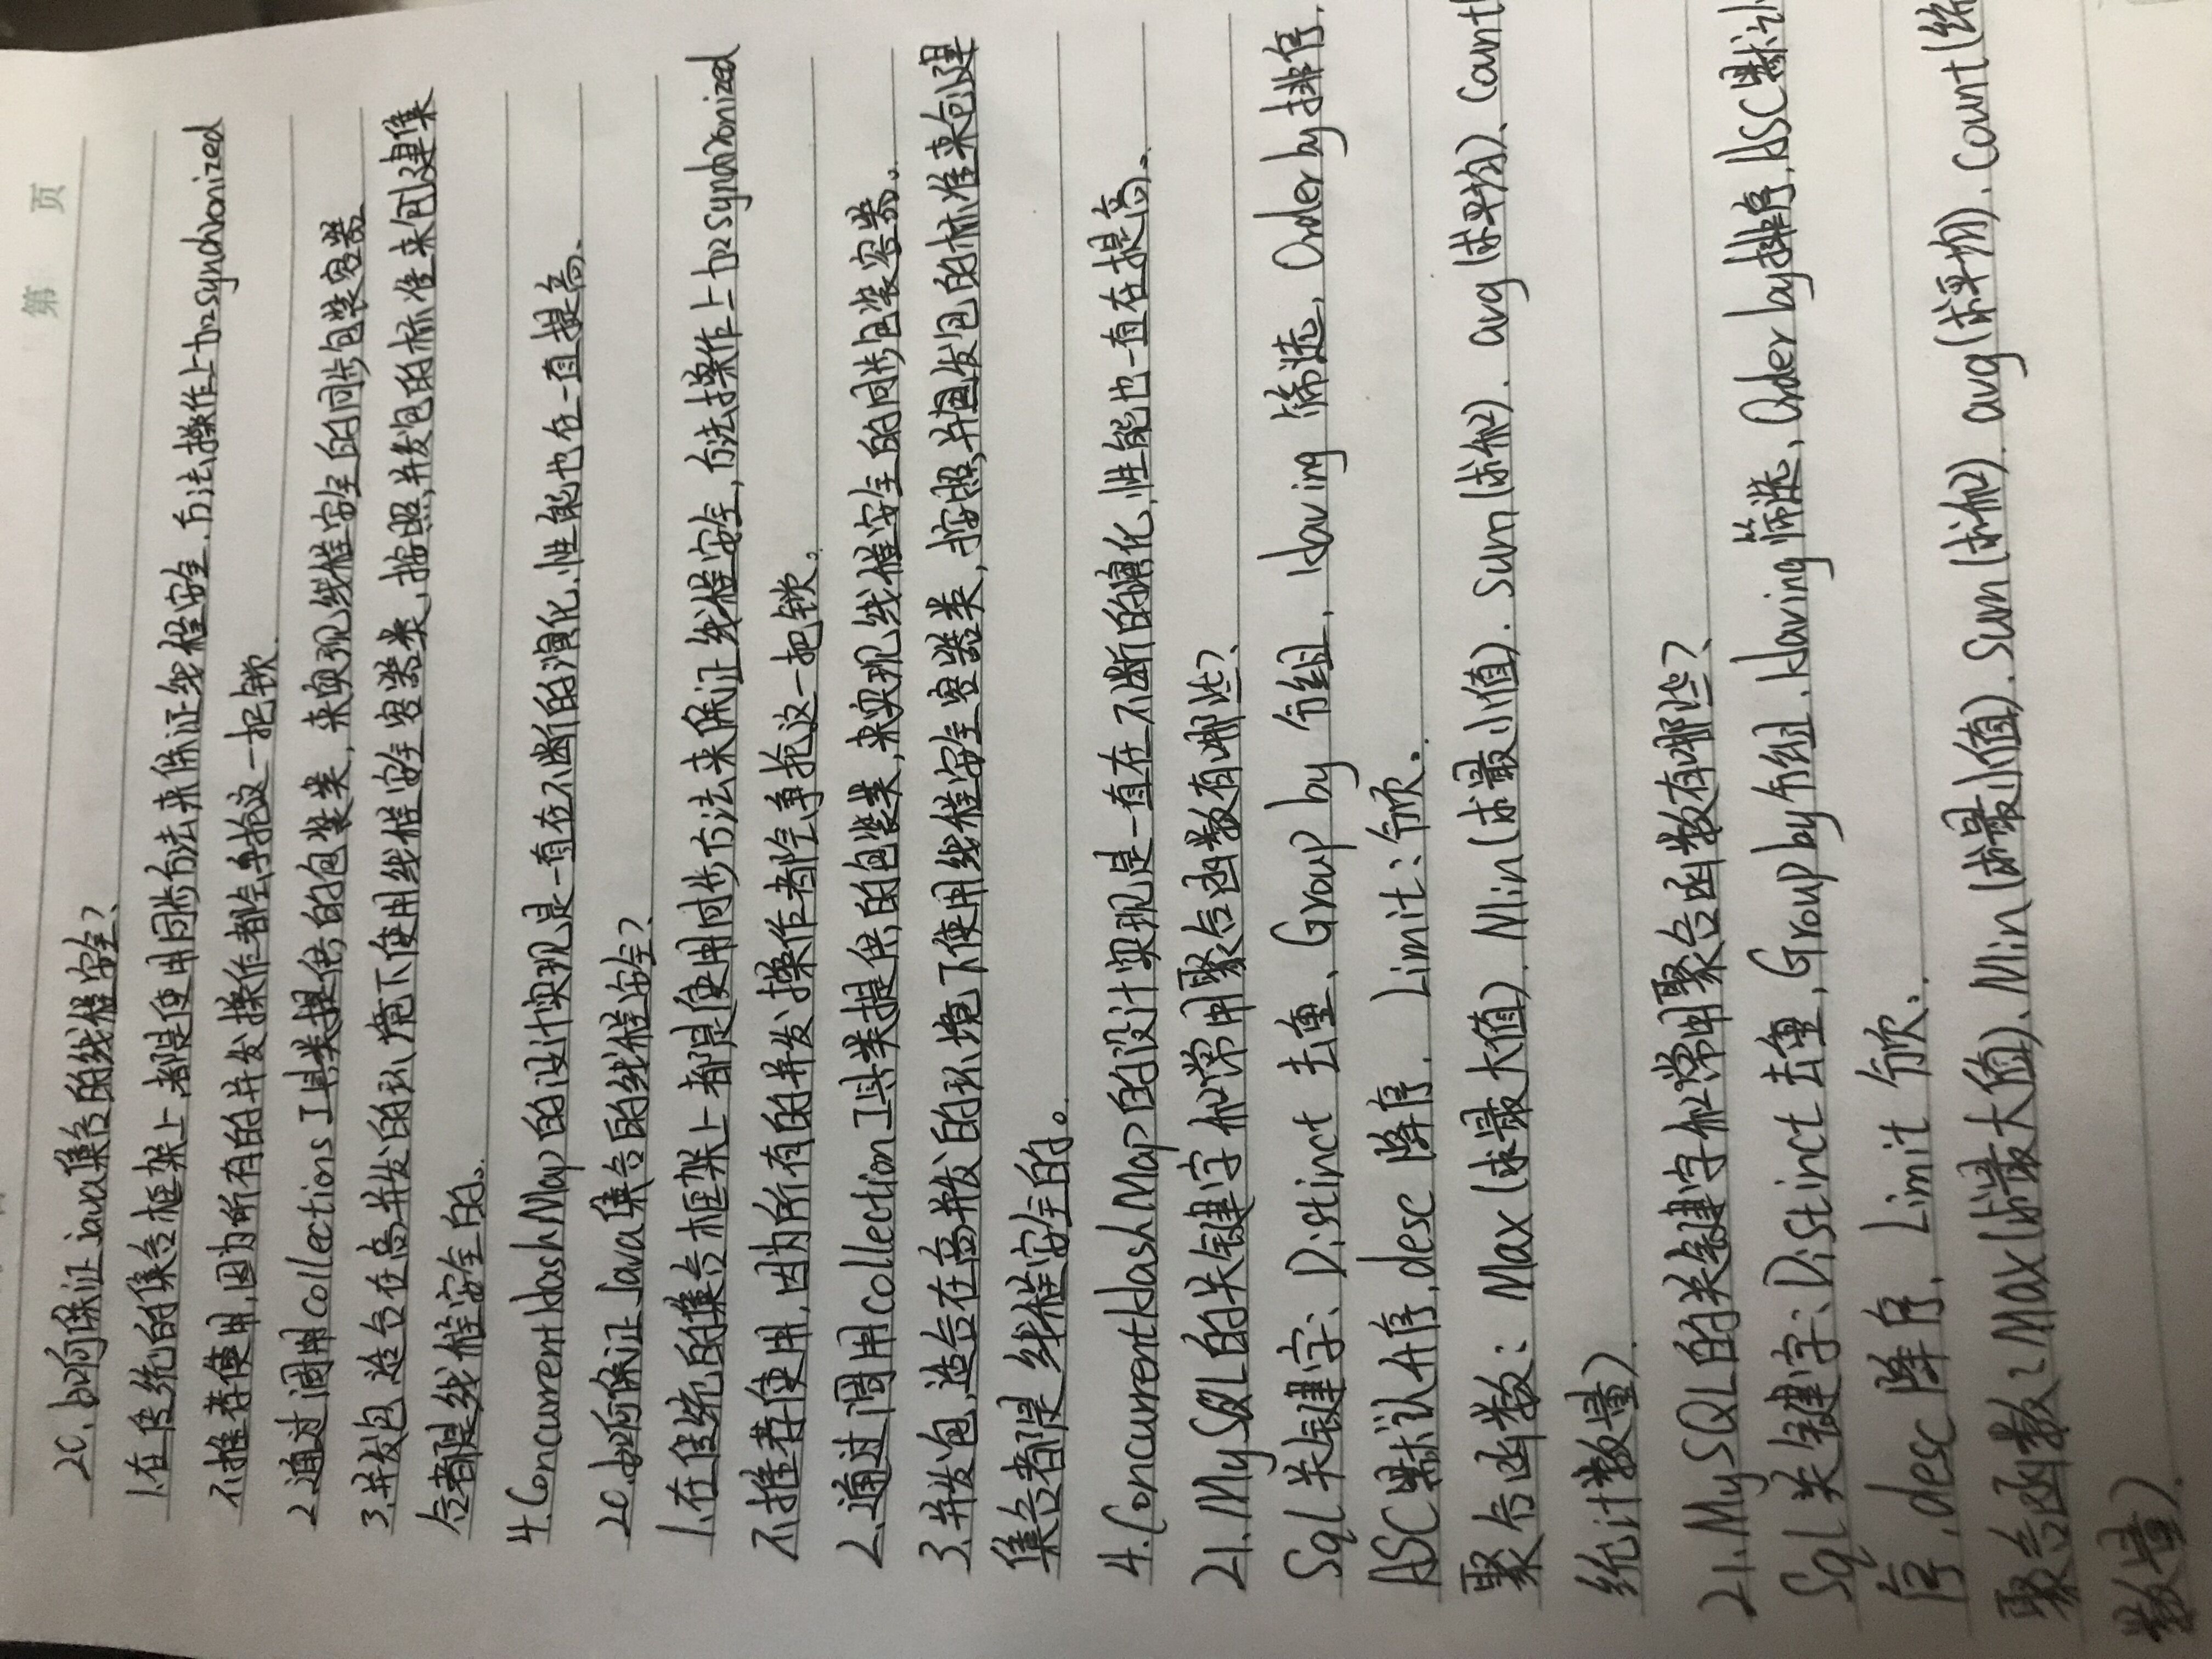 第 页
20.如何保证java集合的线程安全?
1.在传统的集合框架上,都是使用同步方法来保证线程安全.方法操作上加synchronized
不推荐使用,因为所有的并发操作都会争抢这一把锁.
2.通过调用collections工具类提供的包装类,来实现线程安全的同步包装容器
3.并发包 适合在高并发的环境下使用线程安全容器类,按照并发包的标准来创建集
合都是线程安全的。
4.ConcurrentHashMap的设计实现是一直在不断的演化.性能也在一直提高.
20.如何保证Java集合的线程安全?
1.在传统的集合框架上都是使用同步方法来保证线程安全,方法操作上加synchronized
不推荐使用,因为所有的并发操作都会争抢这一把锁。
2.通过调用collection工具类提供的包装类,来实现线程安全的同步包装容器。
3.并发包,适合在高并发的环境下使用线程安全容器类,按照并发包的标准来创建
集合都是线程安全的。
4.ConcurrentHashMap的设计实现是一直在不断的演化,性能也一直在提高。
21.MySQL的关键字和常用聚合函数有哪些?
Sql关键字: Distinct 去重、Group by 分组, Having 筛选, Order by排序.
ASC默认升序,desc 降序. Limit:分页。
聚合函数: Max(求最大值). Min(求最小值). Sum(求和). avg(求平均)、Count(
统计数量).
21.MySQL的关键字和常用聚合函数有哪些?
Sql关键字:Distinct 去重,Group by分组.Having筛选,Order by排序.ASC默认
序,desc降序. Limit 分页.
聚合函数:Max(求最大值)、Min(求最小值).Sum(求和).avg(求平均).Count(统
数量).